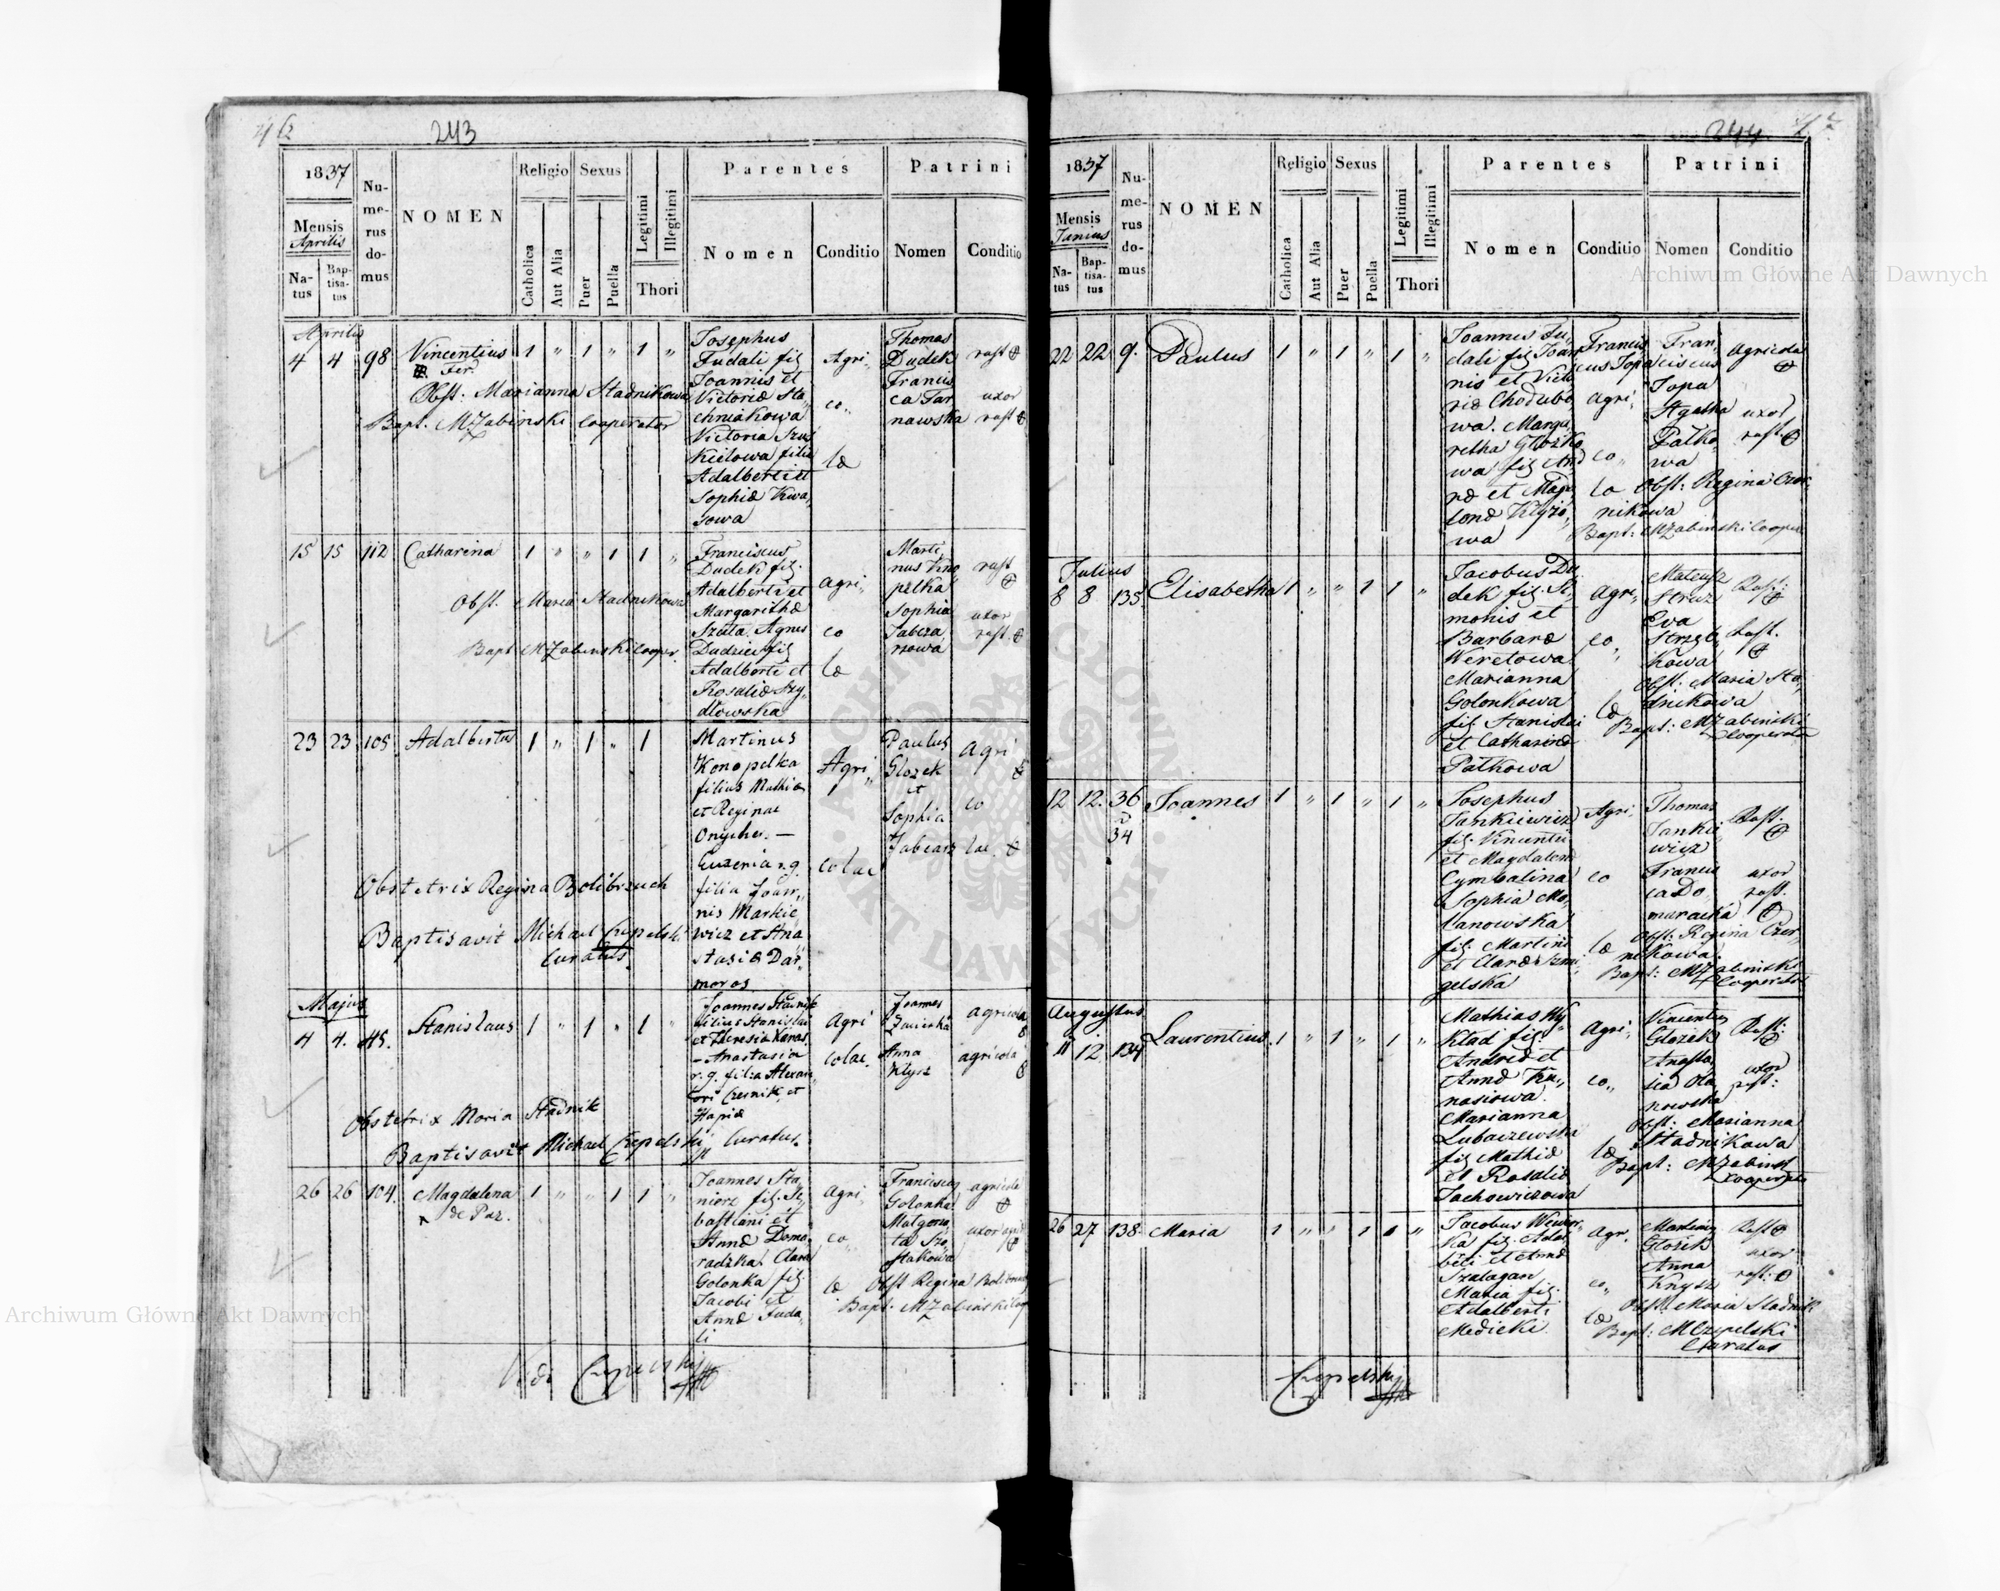 46
243
1837
Numerus domus
NOMEN
Religio
Sexus
Legitimi
Illegitimi
Parentes
Patrini
Mensis
Aprilis
Natus
Baptisatus
Catholica
Aut Alia
Puer
Puella
Thori
Nomen
Conditio
Nomen
Conditio
Aprilis
4 4 98 Vincentius 1 " 1 " 1 "
Fer.
Obst. Marianna Stadnikowa
Bapt. MZabinski Cooperator
Josephus
Fudali fil
Joannis et
Victoriæ Sta
chniakowa
Victoria Szus
kielowa filia
Adalberti et
Sophiæ Kwa,
sowa
Agri,
co,,
læ
Thomas
Dudek
Francis
ca Tar
nawska
rust
uxor
rust
15 15 112 Catharina 1 " " 1 1 "
Obst. Maria Stadnikowa
Bapt MZabinski Cooper.
Franciscus
Dudek fil.
Adalberti et
Margarithæ
Szuta. Agnes
Dudzic fil
Adalberti et
Rosaliæ Szy,
dłowska
Agri,
co
læ
Marti,
nus Kno
pelka
Sophia
Jabcza,
rzowa
rust
uxor
rust.
23 23 105 Adalbertus 1 " 1 " 1
Obstetrix Regina Bolibrzuch
Baptisavit Michael Czepelski
Curatus.
Martinus
Konopelka
filius Mathiæ
et Reginae
Eugenia r.g.
filia Joan,,
nis Markie
wicz et Ana
stasiæ Dar
moros
Agri,,
colae
Paulus
Glozek
et
Sophia
Jabczarz
Agri
co
lae.
Majus
4 4. 45. Stanislaus 1 " 1 " 1 "
Obstetrix Maria Stadnik
Baptisavit Michael Czepelski Curatus.
Joannes Stadnik
filius Stanislai
et Theresia Karas
– Anastasia
r.g. filia Alexan,
Agri
colae.
Joannes
Anna
Klysz
agricola
agricola
26 26 104. Magdalena 1 " " 1 1 "
de Paz.
Joannes Sta
nierz fil. Se,
bastiani et
Annæ Doma
radzka. Clara
Golonka fil.
Jacobi et
Annæ Fuda
li
Agri,
co,,
læ
Franciscus
Golonka
Malgorza,
ta Szo
stakowa
agricola
uxor agri
Obst Regina
Bapt. MZabinski Coop
Vidi Czepelski
244.
1837
Numerus domus
NOMEN
Religio
Sexus
Legitimi
Illegitimi
Parentes
Patrini
Mensis
Junius
Natus
Baptisatus
Catholica
Aut Alia
Puer
Puella
Thori
Nomen
Conditio
Nomen
Conditio
22 22 9. Paulus 1 " 1 " 1 "
Joannes Fu,
dali fil. Joan
nis et Victo
riæ Chodubo,
wa. Marga,
retha Glozko
wa fil. And
reæ et Mag,
lenæ Klyzo,
wa
Agri,
co,,
læ
Fran,
ciscus
Sopa
Agatha
Patko,
wa
agricola
uxor
rust.
Obst: Regina Czer,
nikowa
Bapt: MZabinski Cooper
Julius
8 8 135 Elisabetha 1 " " 1 1 "
Jacobus Du
dek fil. Si,
monis et
Barbaræ
Weretowa.
Marianna
Golonkowa
fil. Stanislai
et Catharinæ
Patkowa
Agri,
co,,
læ
Mateusz
Straz
Eva
Strzel,
kowa
Rust:
Rust.
Obst. Maria Sta,
dnikowa
Bapt: MZabinski
Cooperator
12 12. 36 Joannes 1 " 1 " 1 "
34
Josephus
Jankiewicz
fil. Vincentii
et Magdalenæ
Cymbalina
Sophia Mo,
lanowska
fil. Martini
et Claræ
gelska
Agri,
co
læ
Thomas
Jankie
wicz
Francis
ca Do
maracka
Rust.
uxor
rust.
Obst: Regina Czer,
nikowa.
Bapt: MZabinski
Cooperator
Augustus
11 12 134 Laurentius 1 " 1 " 1 "
Mathias Wy
klad fil.
Andreæ et
Annæ Ku,
nasiowa.
Marianna
Lubaczewska
fil Mathiæ
et Rosaliæ
Jachowiczowa
Agri,
co,,
læ
Vincentius
Glozek
Anasta,
sia
nowska
Rust:
uxor
rust:
Obst: Marianna
Stadnikowa
Bapt: MZabinski
Cooperator
26 27 138 Maria 1 " " 1 1 "
Jacobus Wewer,
ka fil. Adal,
berti et Annæ
Szalagan
Maria fil.
Adalberti
Medicki.
Agr,
co,,
læ
Glozek
Anna
Knysz
Rust
uxor
rust:
Obst: Maria Stadnik
Bapt: MCzepelski
Curatus
Czepelski
Archiwum Główne Akt Dawnych
Archiwum Główne Akt Dawnych
ARCHIWUM GŁÓWNE AKT DAWNYCH